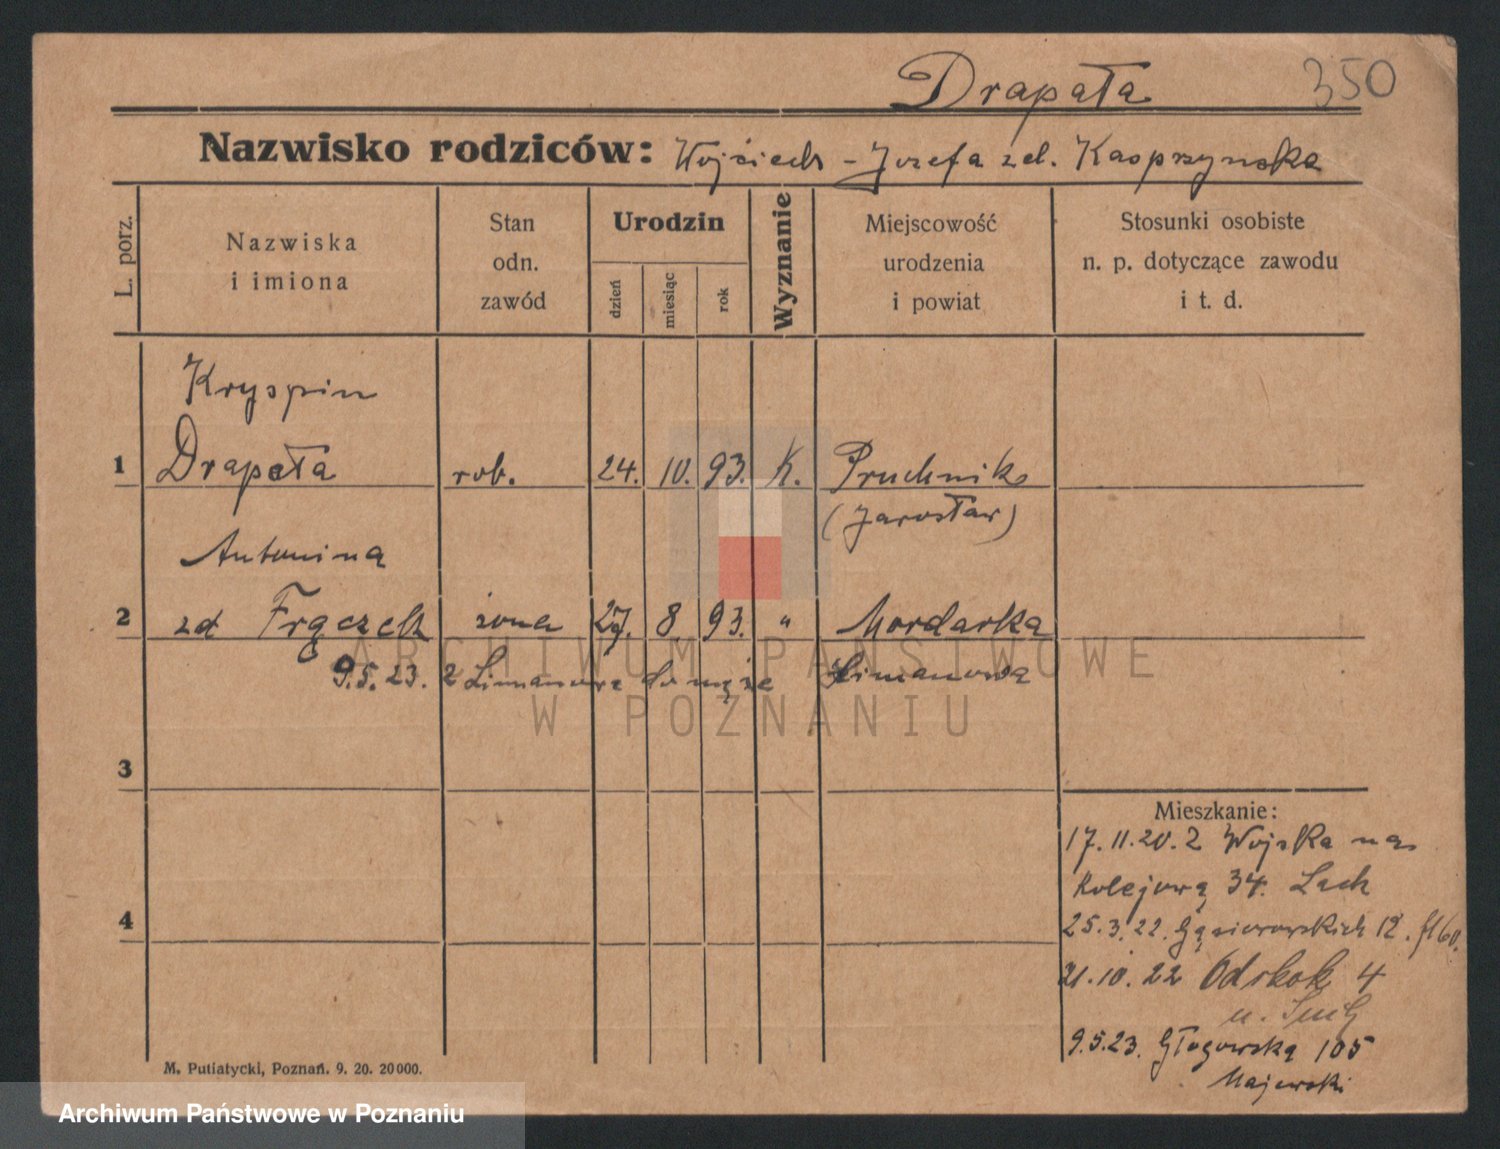 Drapała 350
Nazwisko rodziców: Wojciech - Jozefa zd. Kasprzynska
L. porz.
Nazwiska
i imiona
Stan
odn.
zawód
Urodzin
dzień
miesiąc
rok
Wyznanie
Miejscowość
urodzenia
i powiat
Stosunki osobiste
n. p. dotyczące zawodu
i t. d.
Kryspin
1 Drapała rob. 24. 10. 93. K. Pruchnik
(Jarosław)
Antonina
2 zd Frączek żona 27. 8. 93. " Mordarka
9.5.23. z Limanowa do męża Limanowa
ARCHIWUM PAŃSTWOWE
W POZNANIU
3
Mieszkanie:
17.11.20. z Wojska na
Kolejową 34. Lach
4
25.3.22. Gąsiorowskich 12.
21.10.22 Odskok 4
u.
9.5.23. Głogowska 105
Majewski
M. Putiatycki, Poznań. 9. 20. 20000.
Archiwum Państwowe w Poznaniu